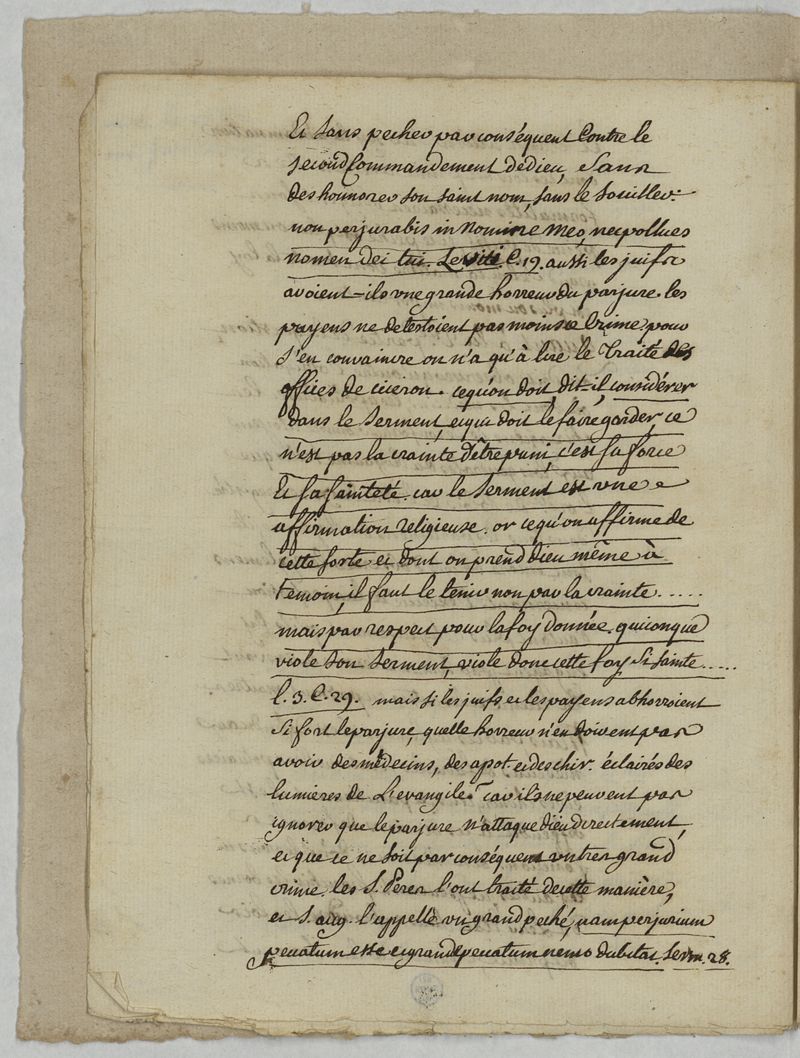 Et sans pecher par conséquent Contre le
second Commandement de dieu, sans
deshonnorer son saint nom, sans le souiller:
non perjurabis in nomine meo, nec pollues
nomen dei tui. Levit. C. 19. aussi les juifs
avoient-ils vne grande horreur du parjure. les
payens ne detestoient pas moins ce Crime: pour
s'en convaincre on n'a qu'à lire le Traité des
offices de ciceron. ce qu'on doit, dit-il, considérer
dans le serment, et qui doit le faire garder, ce
n'est pas la crainte d'être puni, c'est sa force
Et sa sainteté. car le serment est vne
affirmation religieuse. or ce qu'on affirme de
cette sorte et dont on prend dieu même à
temoin, il faut le tenir non par la crainte.....
mais par respect pour la foy donnée. quiconque
viole son serment, viole donc cette foy si sainte.....
l. 3. C. 29. mais si les juifs et les payens abhorroient
si fort le parjure, quelle horreur n'en doivent pas
avoir des médecins, des apot. et des chir. éclairés des
lumières de L'evangile? car ils ne peuvent pas
ignorer que le parjure n'attaque dieu directement,
et que ce ne soit par conséquent vn tres grand
crime. les S. Peres l'ont traité de cette manière,
et S. aug. l'appelle vn grand peché, nam perjurium
peccatum esse et grande peccatum nemo dubitat. serm. 28.